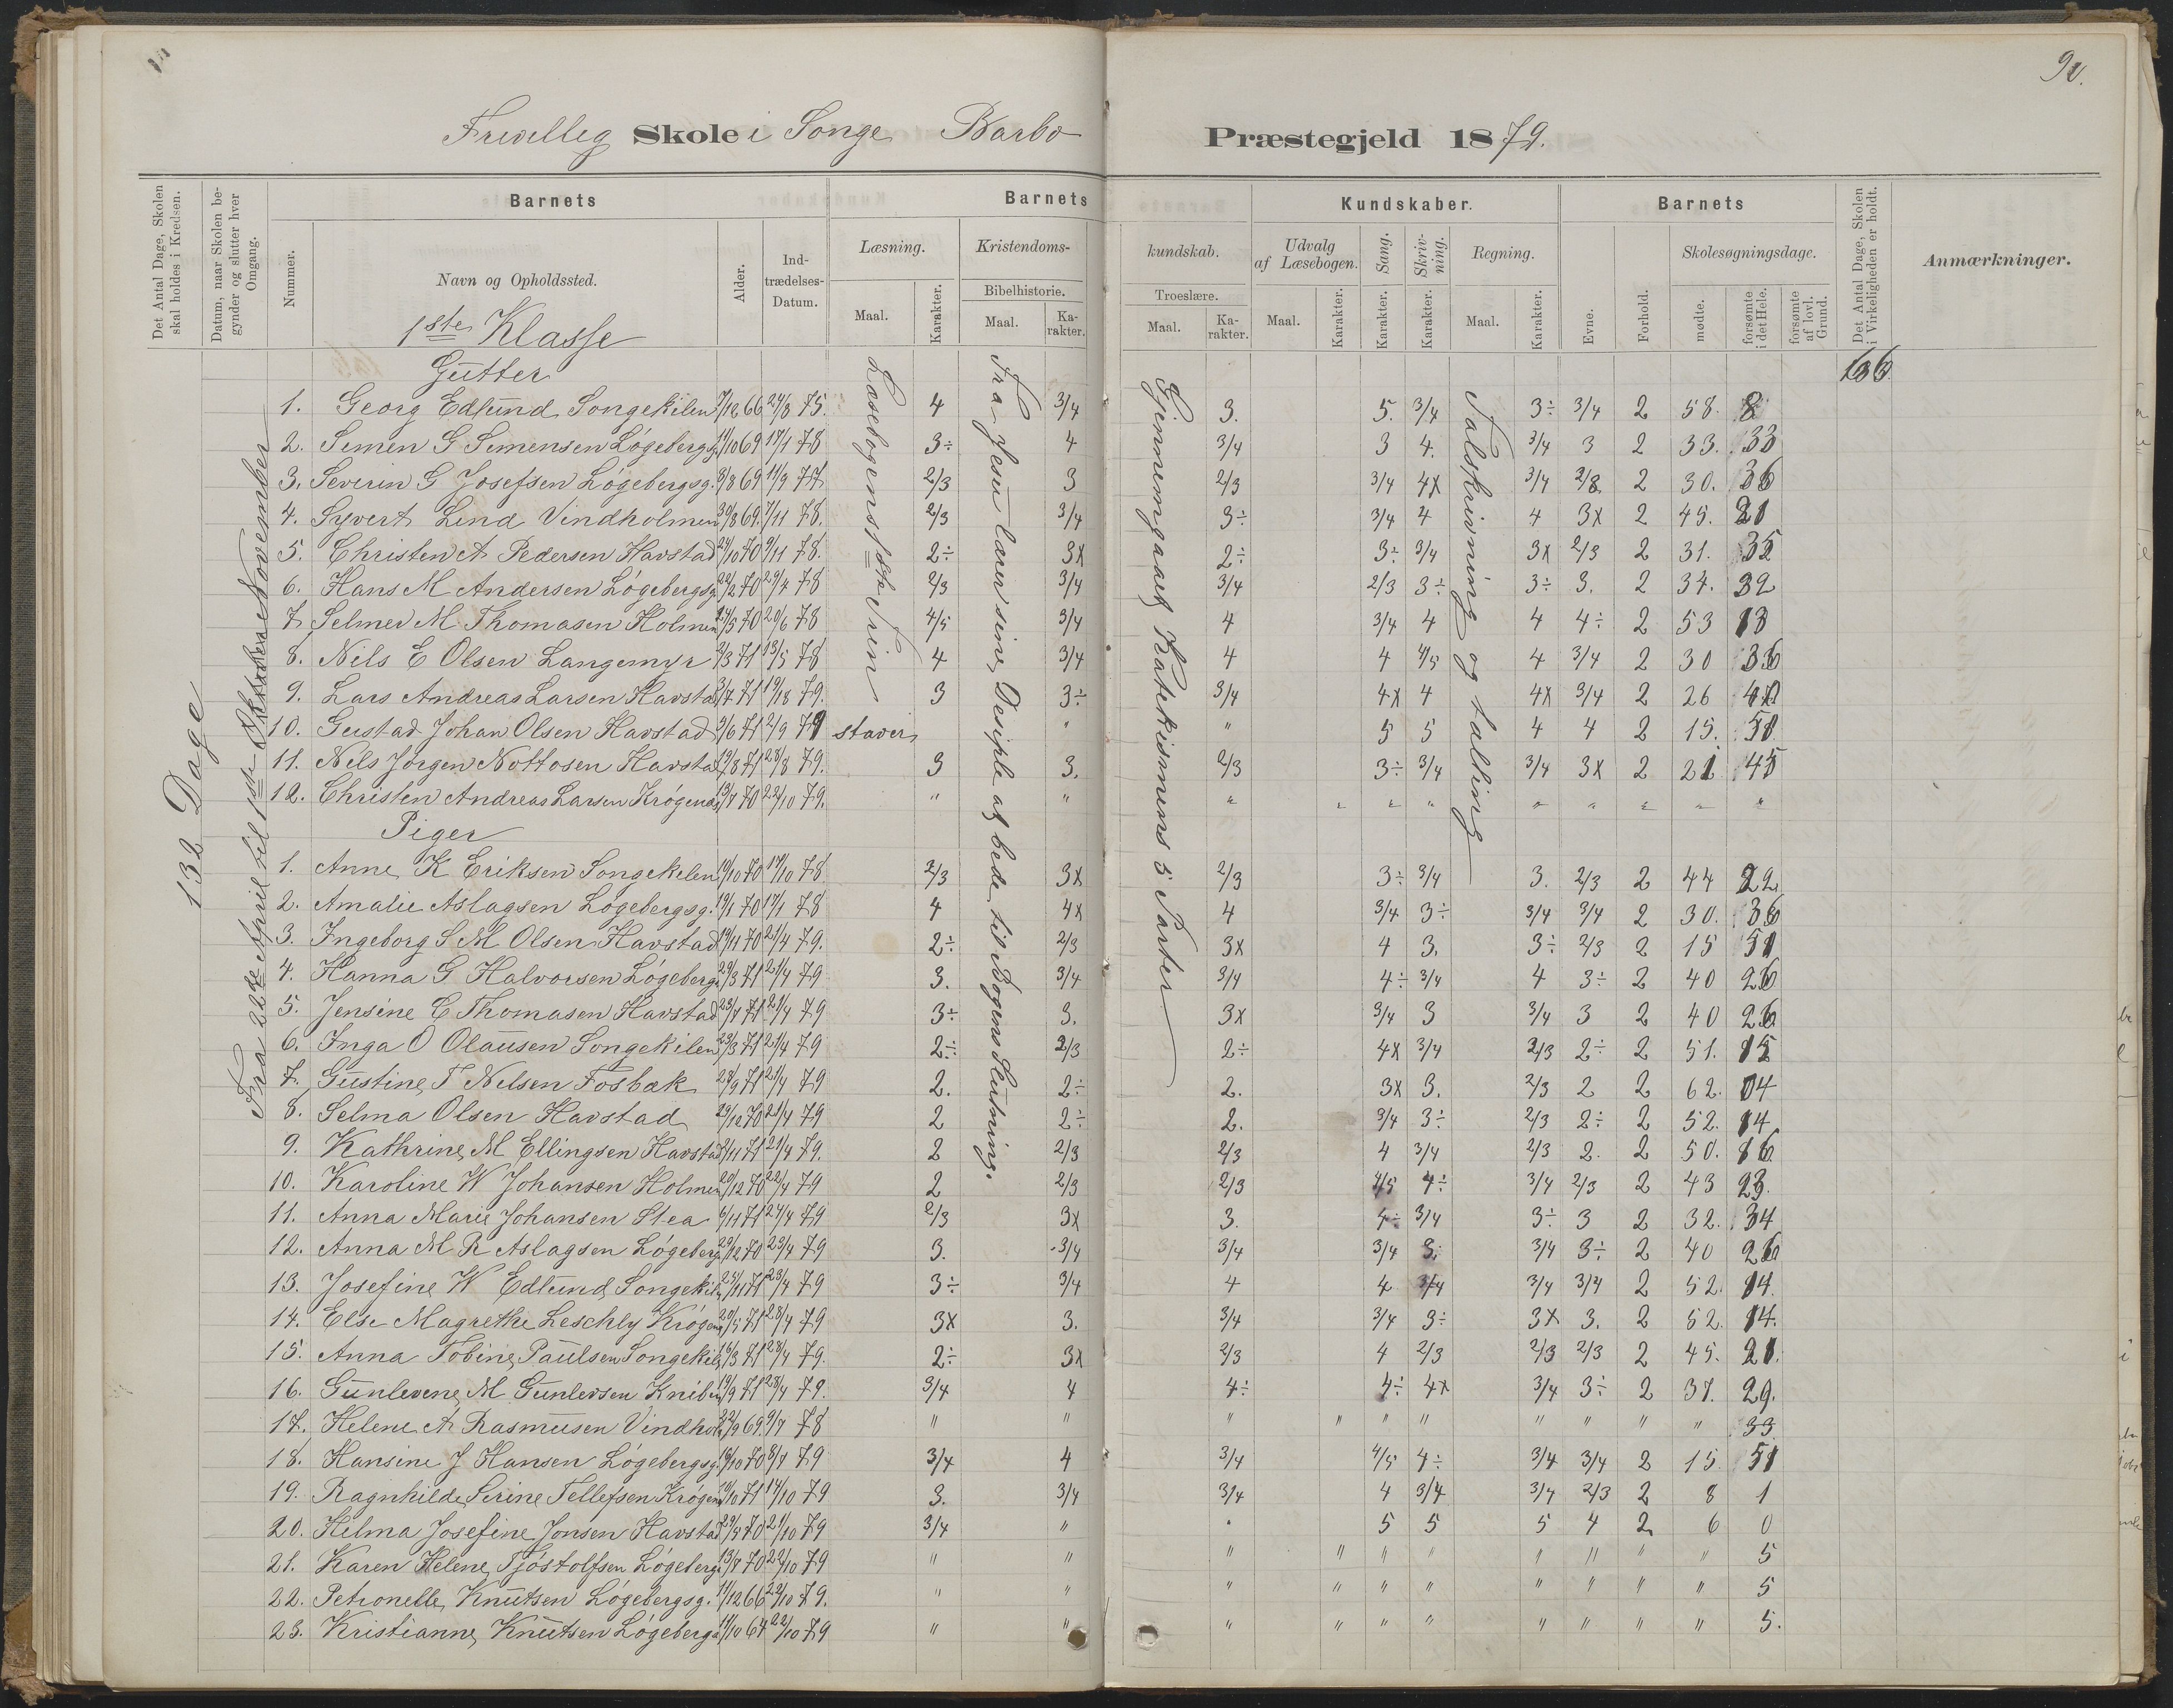 9
Frivilleg Skole i Songe Barbo Præstegjeld 1879.
Det Antal Dage, Skolen skal holdes i Kredsen.
Datum, naar Skolen begynder og slutter hver Omgang.
Barnets
Nummer.
Navn og Opholdssted.
Alder.
Indtrædelses-Datum.
Barnets Kundskaber.
Læsning.
Maal.
Karakter.
Kristendomskundskab.
Bibelhistorie.
Maal.
Karakter.
Troeslære.
Maal.
Karakter.
Udvalg af Læsebogen.
Maal.
Karakter.
Sang.
Karakter.
Skrivning.
Karakter.
Regning.
Maal.
Karakter.
Barnets
Evne.
Forhold.
Skolesøgningsdage.
mødte.
forsømte i det Hele.
forsømte af lovl. Grund.
Det Antal Dage, Skolen i Virkeligheden er holdt.
Anmærkninger.
132 Dage
Fra 22de April til 1ste November
Læsebogens 1ste Trin
Fra Jesu lærer sine Disiple at bede til Bogens Slutning.
Gjennemgaaet Katekismens 5 Parter
Talskrivning og tælling
1ste Klasse
Gutter
1. Georg Edlund Songekilen 7/12 66 24/8 75. 4 3/4 3. 5. 3/4 3÷ 3/4 2 58. 8
2. Simen G Simensen Løgebergsg. 11/10 69 17/1 78 3÷ 4 3/4 3 4. 3/4 3 2 33. 33
3. Severin G Josefsen Løgebergsg. 3/8 69 11/9 77 2/3 3 2/3 3/4 4x 3/4 2/3 2 30. 36
4. Syvert Lind Vindholmen 30/8 69. 7/11 78. 2/3 3/4 3÷ 3/4 4 4 3x 2 45. 21
5. Christen A Pedersen Havstad 24/10 70 9/11 78. 2÷ 3x 2÷ 3÷ 3/4 3x 2/3 2 31. 35
6. Hans M Andersen Løgebergsg. 22/2 70 29/4 78 2/3 3/4 3/4 2/3 3÷ 3÷ 3. 2 34. 32
7. Selmer M Thomasen Holmen 24/5 70 20/6 78 4/5 3/4 4 3/4 4 4 4÷ 2 53 13
8. Nils E Olsen Langemyr 3/3 71 13/5 78 4 3/4 4 4 4/5 4 3/4 2 30 36
9. Lars Andreas Larsen Havstad 3/7 71 19/8 79. 3 3÷ 3/4 4x 4 4x 3/4 2 26 40
10. Gustad Johan Olsen Havstad 2/6 71 2/9 79 staver " " 5 5 4 4 2 15. 51
11. Nels Jørgen Nottosen Havstad 19/8 71 28/8 79. 3 3. 2/3 3÷ 3/4 3/4 3x 2 21 45
12. Christen Andreas Larsen Krøgenes 13/7 70 22/10 79. " " " " " " " " " " "
Piger
1. Anne K Eriksen Songekilen 19/10 70 17/10 78 2/3 3x 2/3 3÷ 3/4 3. 2/3 2 44 22
2. Amalie Aslagsen Løgebergsg. 19/1 70 17/1 78 4 4x 4 3/4 3÷ 3/4 3/4 2 30. 36
3. Ingeborg S M Olsen Havstad 19/11 70 21/4 79. 2÷ 2/3 3x 4 3. 3÷ 2/3 2 15 51
4. Hanna G Halvorsen Løgeberg 29/3 71 21/4 79 3. 3/4 3/4 4÷ 3/4 4 3÷ 2 40 26
5. Jensine C Thomasen Havstad 23/7 71 21/4 79 3÷ 3. 3x 3/4 3 3/4 3 2 40 26
6. Inga O Olausen Songekilen 23/3 71 21/4 79 2÷ 2/3 2÷ 4x 3/4 2/3 2÷ 2 51. 15
7. Gustine T Nelsen Fosbæk 28/9 71 21/4 79 2. 2÷ 2. 3x 3. 2/3 2 2 62. 04
8. Selma Olsen Havstad 29/12 70 21/4 79 2 2÷ 2. 3/4 3÷ 2/3 2÷ 2 52. 14
9. Kathrine M Ellingsen Havstad 2/11 71 21/4 79. 2 2/3 2/3 4 3/4 2/3 2. 2 50. 16
10. Karoline W Johansen Holmen 20/12 70 22/4 79 2 2/3 2/3 4/5 4÷ 3/4 2/3 2 43 23.
11. Anna Marie Johansen Stea 6/11 71 24/4 79 2/3 3x 3. 4÷ 3/4 3÷ 3 2 32. 34
12. Anna M R Aslagsen Løgeberg 29/12 70 23/4 79 3. 3/4 3/4 3/4 3. 3/4 3÷ 2 40 26
13. Josefine W Edlund Songekilen 23/11 71 23/4 79 3÷ 3/4 4 4 3/4 3/4 3/4 2 52. 14
14. Else Magrethe Leschly Krøgenes 20/5 71 28/4 79 3x 3. 3/4 3/4 3÷ 3x 3. 2 52. 14.
15. Anna Tobine Paulsen Songekil 16/3 71 28/4 79. 2÷ 3x 2/3 4 2/3 2/3 2/3 2 45. 21.
16. Gunlevene M Gunlevsen Kniben 19/9 71 28/4 79. 3/4 4 4÷ 4÷ 4x 3/4 3÷ 2 37. 29.
17. Helene A Rasmusen Vindhol 22/9 69 9/7 78 " " " " " " " " " " 33
18. Hansine J Hansen Løgebergsg. 16/10 70 8/7 79 3/4 4 3/4 4/5 4÷ 3/4 3/4 2 15. 51
19. Ragnhilde Serine Tellefsen Krøgenes 19/10 71 14/10 79 3. 3/4 3/4 4 3/4 3/4 2/3 2 8 1
20. Hilma Josefine Jonsen Havstad 29/5 70 21/10 79 3/4 " " 5 5 5 4 2 6 0
21. Karen Helene Tjøstolfsen Løgeberg 13/7 70 22/10 79 " " " " " " " " " " 5
22. Petronelle Knutsen Løgebergsg. 11/12 66 22/10 79. " " " " " " " " " " 5
23. Kristianne Knutsen Løgeberg 11/10 64 22/10 79 " " " " " " " " " " 5.